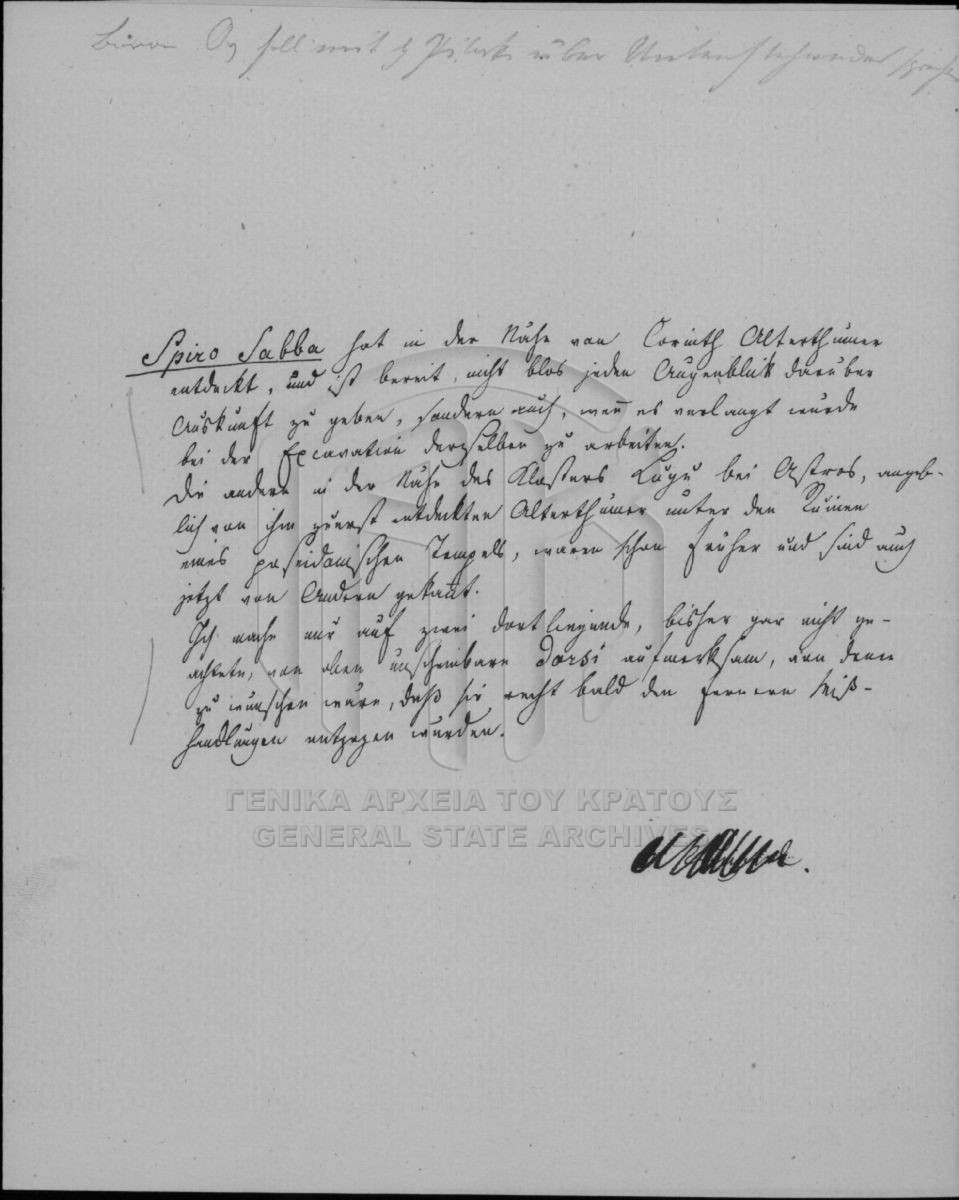 soll mit H Pilati über Untenstehendes sprechen
Spiro Sabba hat in der Nähe von Corinth Alterthümer
entdeckt, und ist bereit, nicht blos jeden Augenblik darüber
Auskunft zu geben, sondern auch, wen̄ es verlangt würde
bei der Excavation derselben zu arbeiten.
Die andern in der Nähe des Klosters Luɣu bei Astros, angeb-
lich von ihm zuerst entdeckten Alterthümer unter den Ruinen
eines poseidonischen Tempels, waren schon früher und sind auch
jetzt von Andern gekan̄t.
Ich mache nur auf zwei dort liegende, bisher gar nicht ge-
achtete, von oben unscheinbare Dorsi aufmerksam, von denen
zu wünschen wäre, daß sie recht bald den fernern Miß-
handlungen entzogen würden.
ΓΕΝΙΚΑ ΑΡΧΕΙΑ ΤΟΥ ΚΡΑΤΟΥΣ
GENERAL STATE ARCHIVES